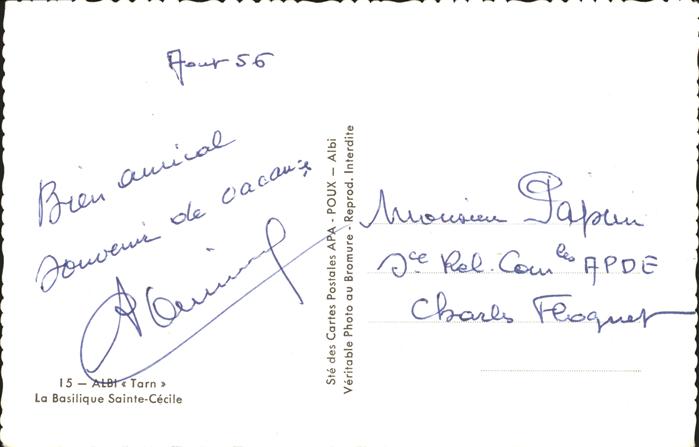 Aout 56
Bien amical
souvenir de vacances
15 — ALBI « Tarn »
La Basilique Sainte-Cécile
Sté des Cartes Postales APA - POUX — Albi
Véritable Photo au Bromure - Reprod. Interdite
Monsieur Papin
Sce Rel. Com les APDE
Charles Floquet